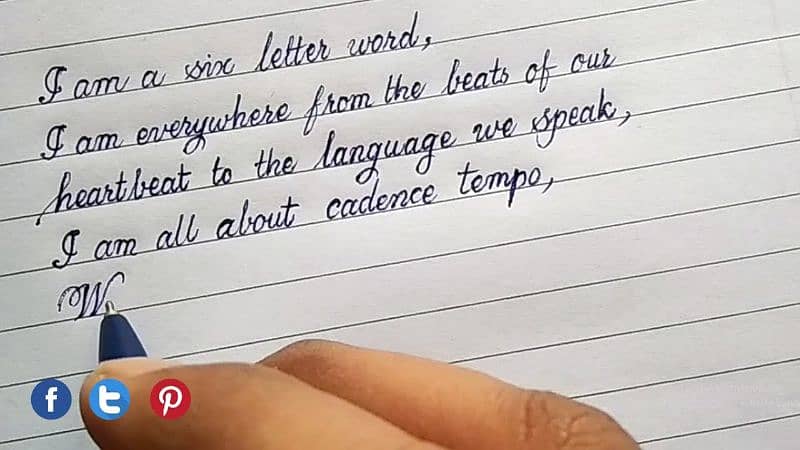 I am a six letter word,
I am everywhere from the beats of our
heartbeat to the language we speak,
I am all about cadence tempo,
W